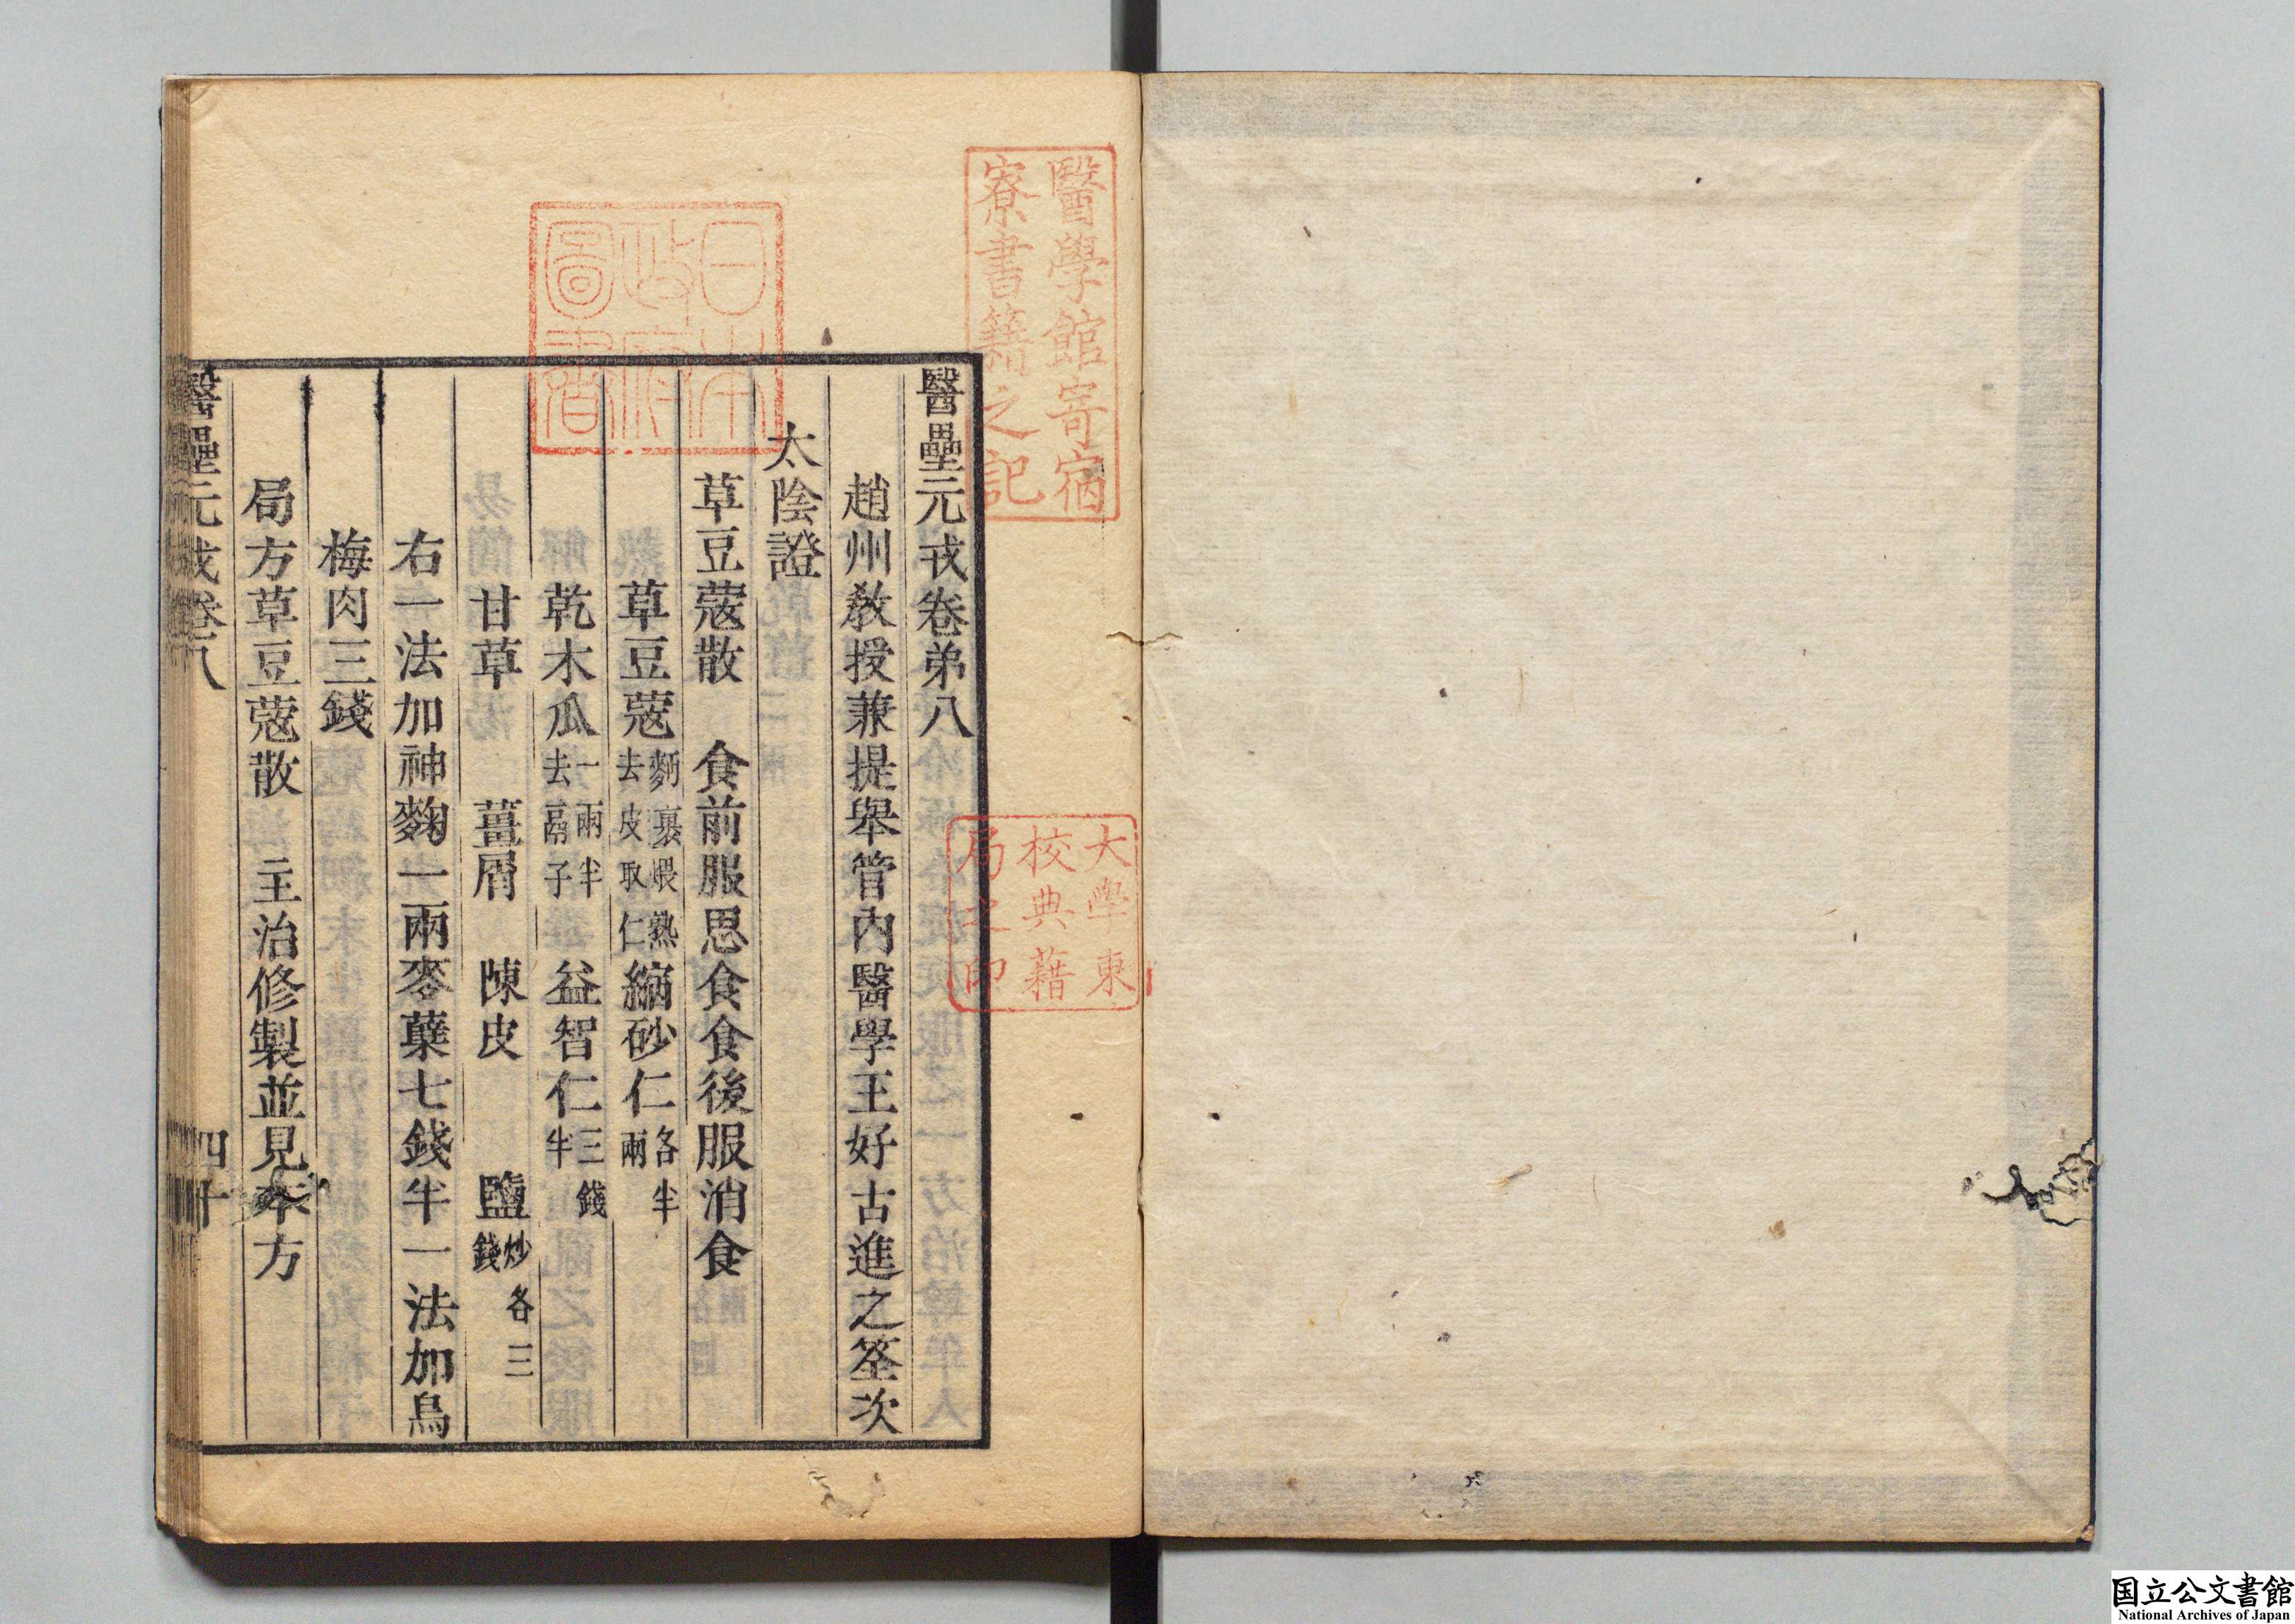 醫壘元戎卷弟八
趙州教授兼提舉管內醫學王好古進之筌次
太陰證
草豆蔲散 食前服思食食後服消食
草豆蔲麪裹煨熟去皮取仁 縮砂仁各半兩
乾木瓜一兩半去鬲子 益智仁三錢半
甘草 薑屑 陳皮 鹽炒各三錢
右一法加神麴一兩麥蘗七錢半一法加烏
梅肉三錢
局方草豆蔲散 主治修製並見本方
醫壘元戎卷八 四十
醫學館寄宿
寮書籍之記
日本
政府
圖書
大學東
校典藉
局之印
国立公文書館
National Archives of Japan